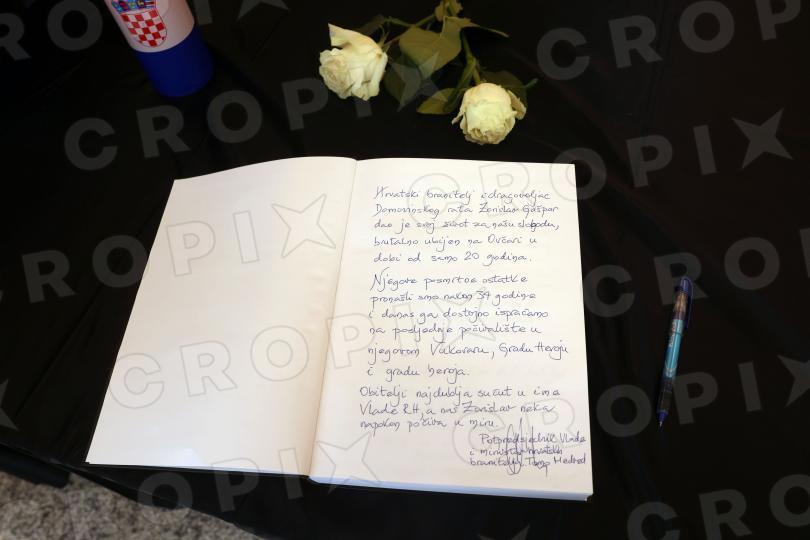 Hrvatski branitelj i dragovoljac
Domovinskog rata Zorislav Gašpar
dao je svoj život za našu slobodu,
brutalno ubijen na Ovčari u
dobi od samo 20 godina.
Njegove posmrtne ostatke
pronašli smo nakon 34 godine
i danas ga dostojno ispraćamo
na posljednje počivalište u
njegovom Vukovaru, Gradu Heroju
i gradu heroja.
Obitelji najdublja sućut u ime
Vlade RH, a naš Zorislav neka
napokon počiva u miru.
Potpredsjednik Vlade
i ministar hrvatskih
branitelja Tomo Medved
CROPIX